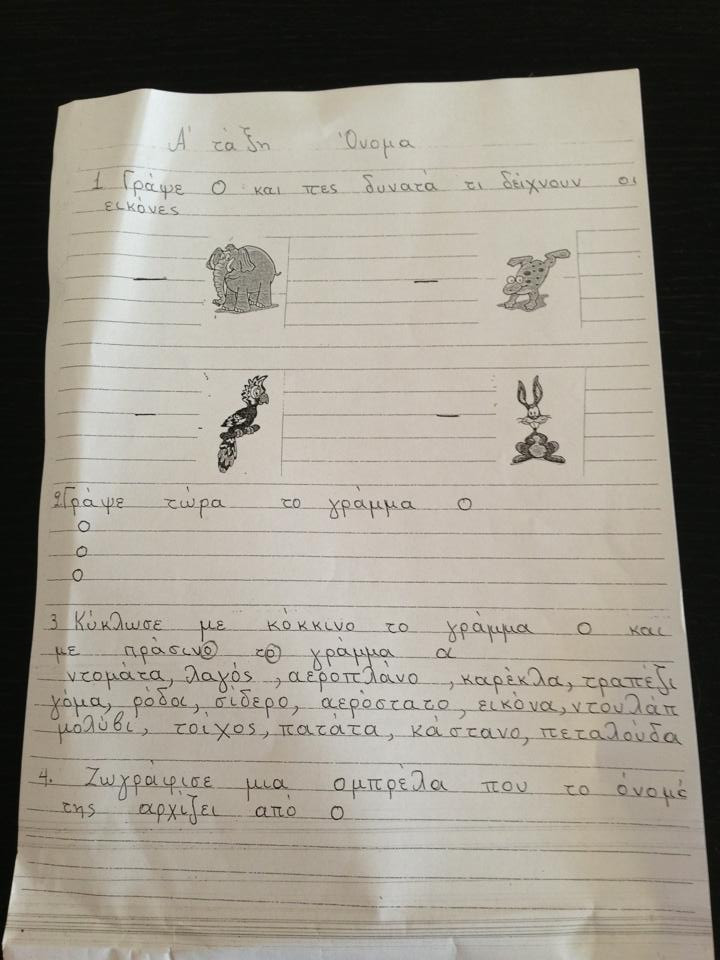 Α' τάξη Όνομα
1 Γράψε Ο και πες δυνατά τι δείχνουν οι
εικόνες
2.Γράψε τώρα το γράμμα Ο
Ο
Ο
Ο
3 Κύκλωσε με κόκκινο το γράμμα ο και
με πράσινο το γράμμα α
ντομάτα, λαγός, αεροπλάνο, καρέκλα, τραπέζι
γόμα, ρόδα, σίδερο, αερόστατο, εικόνα, ντουλάπ
μολύβι, τοίχος, πατάτα, κάστανο, πεταλούδα
4. Ζωγράφισε μια ομπρέλα που το όνομά
της αρχίζει από Ο